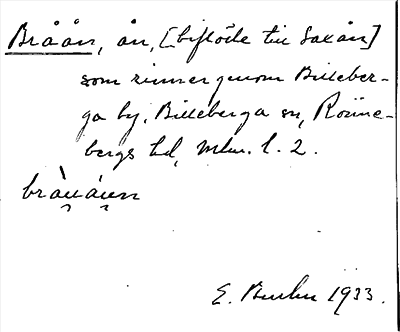 Bråån, ån, [biflöde till Saxån]
som rinner genom Billeber-
ga by, Billeberga sn, Rönne-
bergs hd, Mlm. l. 2.
bràu̯áu̯en
E. 1933.